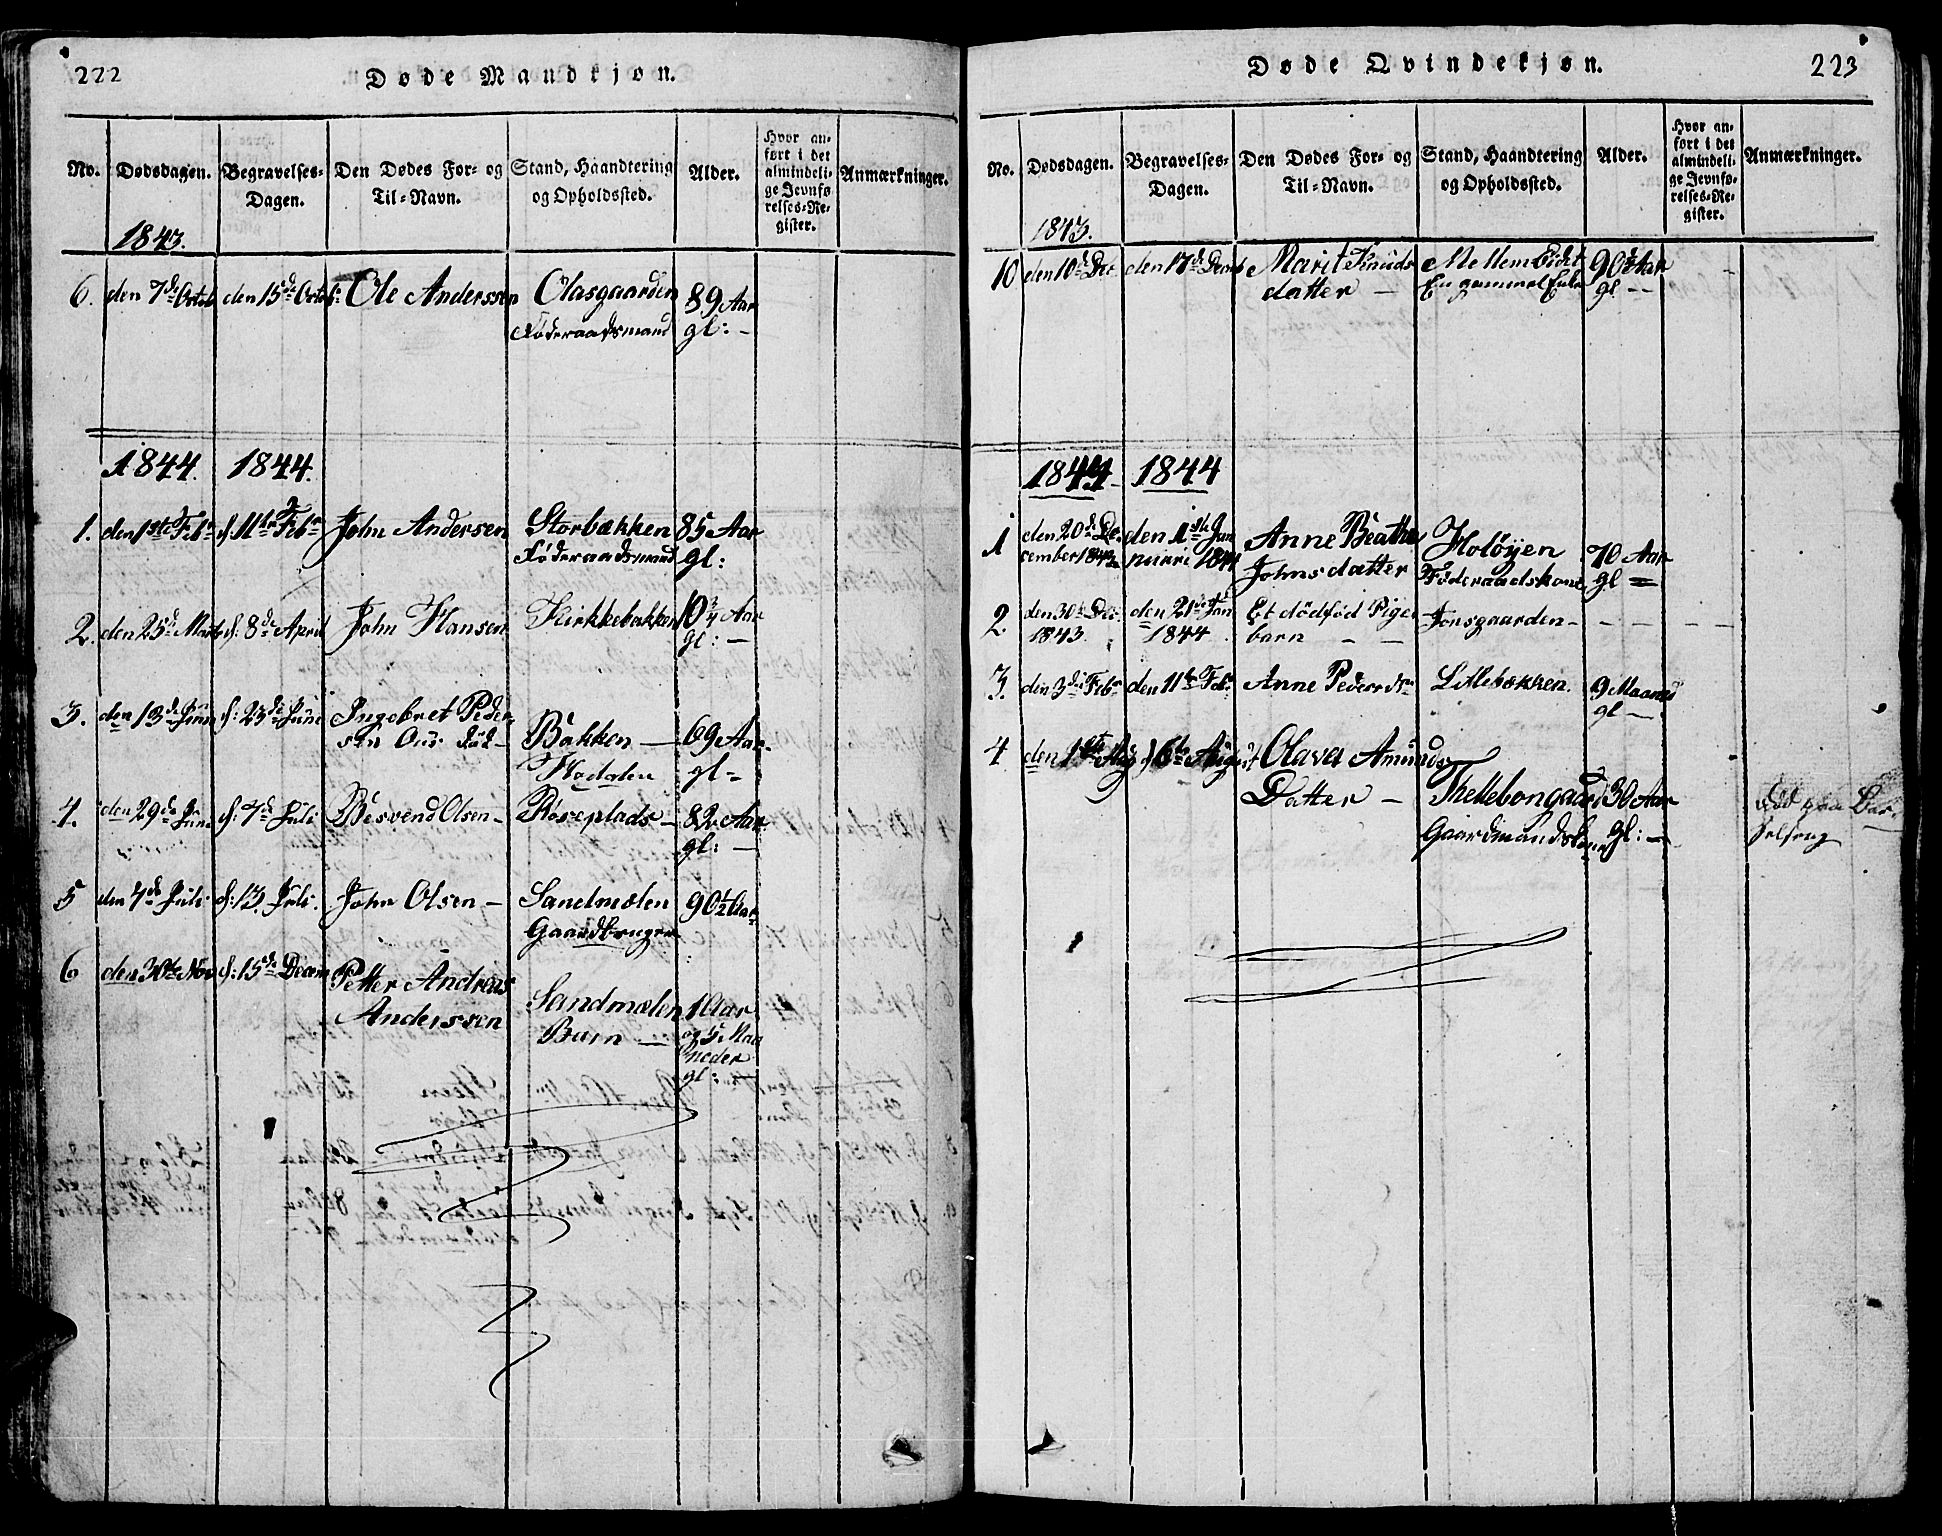 222
Døde Mandkjøn.
No.
Dødsdagen.
Begravelses-
Dagen.
Den Dødes For- og
Til-Navn.
Stand, Haandtering
og Opholdssted.
Alder.
Hvor an-
ført i det
almindeli-
ge Jevnfø-
relses-Re-
gister.
Anmærkninger.
1843.
6. den 7de Octob den 15de Octob: Ole Anderssen Olasgaarden 89 Aar
Føderaadsmand gl: –
1844. 1844.
1. den 1ste Febr d: 11te Febr John Andersen Storbækken 85 Aar
Føderaadsmand gl:
2. den 25de Marts d: 8de April John Hansen Kirkkebakken 10 3/4 Aar
gl: –
3. den 13de Juni d: 23de Juni Ingebret Peder
sen Bakken – 69 Aar
gl –
4. den 29de Juni d: 7de Juli Besvend Olsen – plads – 82 Aar
gl: –
5 den 7de Juli d: 13 Juli. John Olsen – Sandmælen 90 1/2 Aar
Gaardbruger
6 den 30te Nov d: 15de Decem Petter Andreas
Anderssen Sandmælen 1 Aar
Barn – og 5 Maa
neder
gl: –
Døde Qvindekjøn.
223
No.
Dødsdagen.
Begravelses-
Dagen.
Den Dødes For- og
Til-Navn.
Stand, Haandtering
og Opholdssted.
Alder.
Hvor an-
ført i det
almindeli-
ge Jevnfø-
relses-Re-
gister.
Anmærkninger.
1843.
10 den 10de Dec den 17de Decemb Marit Knuds Mellem Eidet 90 Aar
datter – En gammel Enke gl –
1844 1844
1 den 20de De- den 1ste Jan Anne Beathe Holøyen 70 Aar
cember 1843 nuari 1844 Johnsdatter Føderaadskone gl =
2. den 30te Dec. den 21de Jan Et dødfød Pige Jonsgaarden –
1843. 1844 barn –
3. den 3de Febr den 11te Feb. Anne Pedersdtr Lillebækken. 9 Maaned
gl –
4 den 1ste Aug d 6te August Olava Amunds
Datter – Thellebongaard 30 Aar
Gaardmandskone gl: –
død paa Bar-
selseng